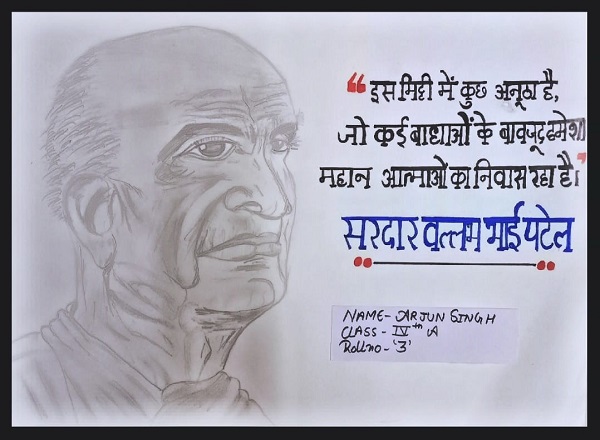 “ इस मिट्टी में कुछ अनूठा है,
जो कई बाधाओं के बावजूद हमेशा
महान आत्माओं का निवास रहा है।"
सरदार वल्लभ भाई पटेल
NAME- ARJUN SINGH
CLASS - IVth A
Roll no - '3'